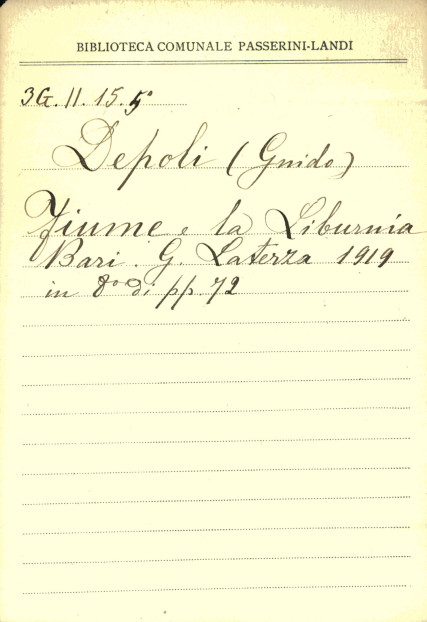 BIBLIOTECA COMUNALE PASSERINI-LANDI
3G. II. 15. 5°
Depoli (Guido)
Fiume e la Liburnia
Bari. G. Laterza 1919
in 8° di pp. 72